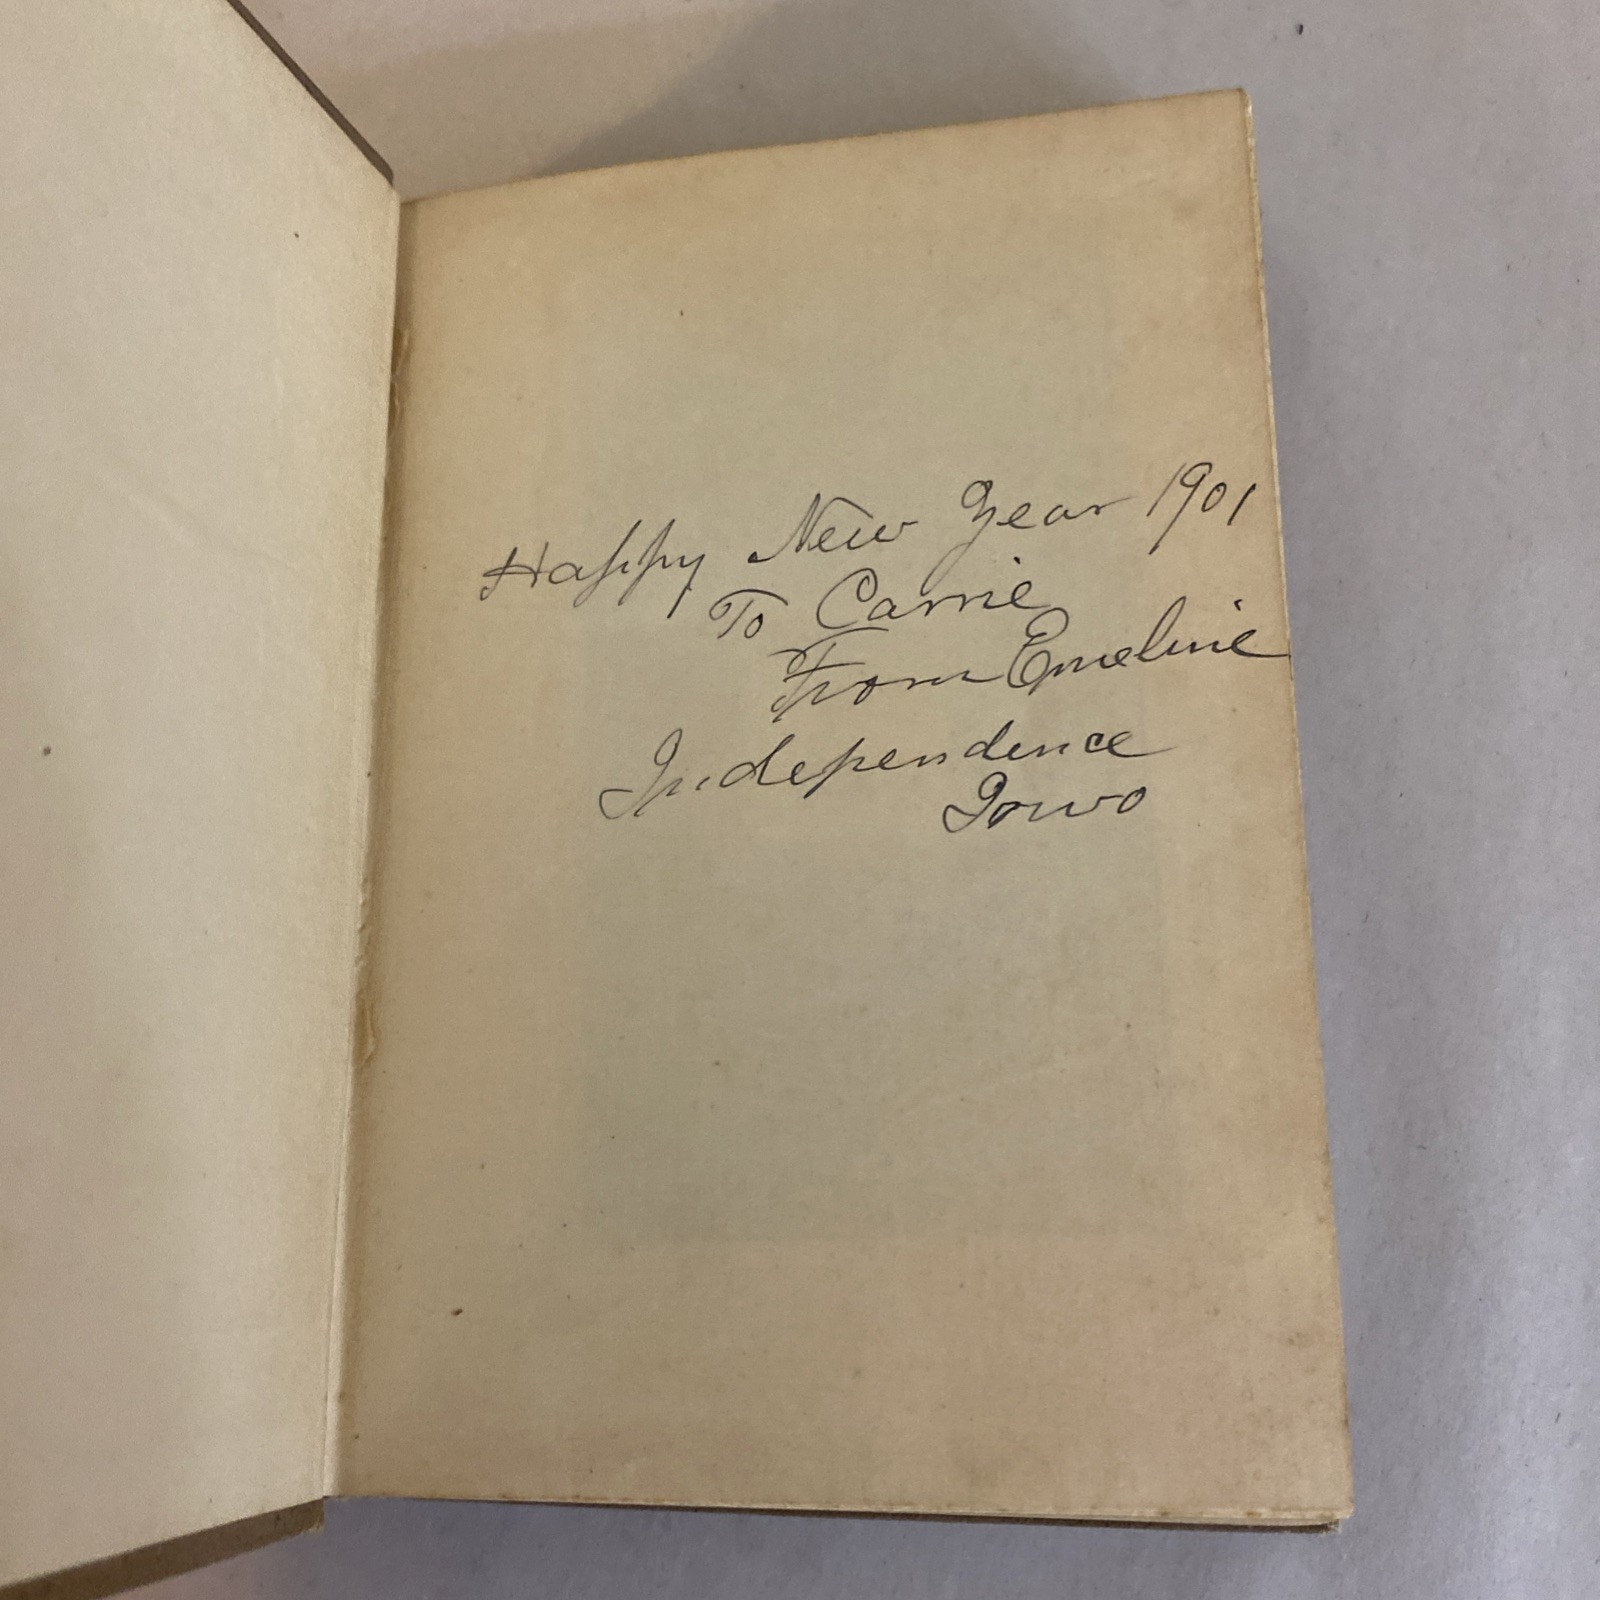 Happy New Year 1901
To Carrie
From Emeline
Independence
Iowa